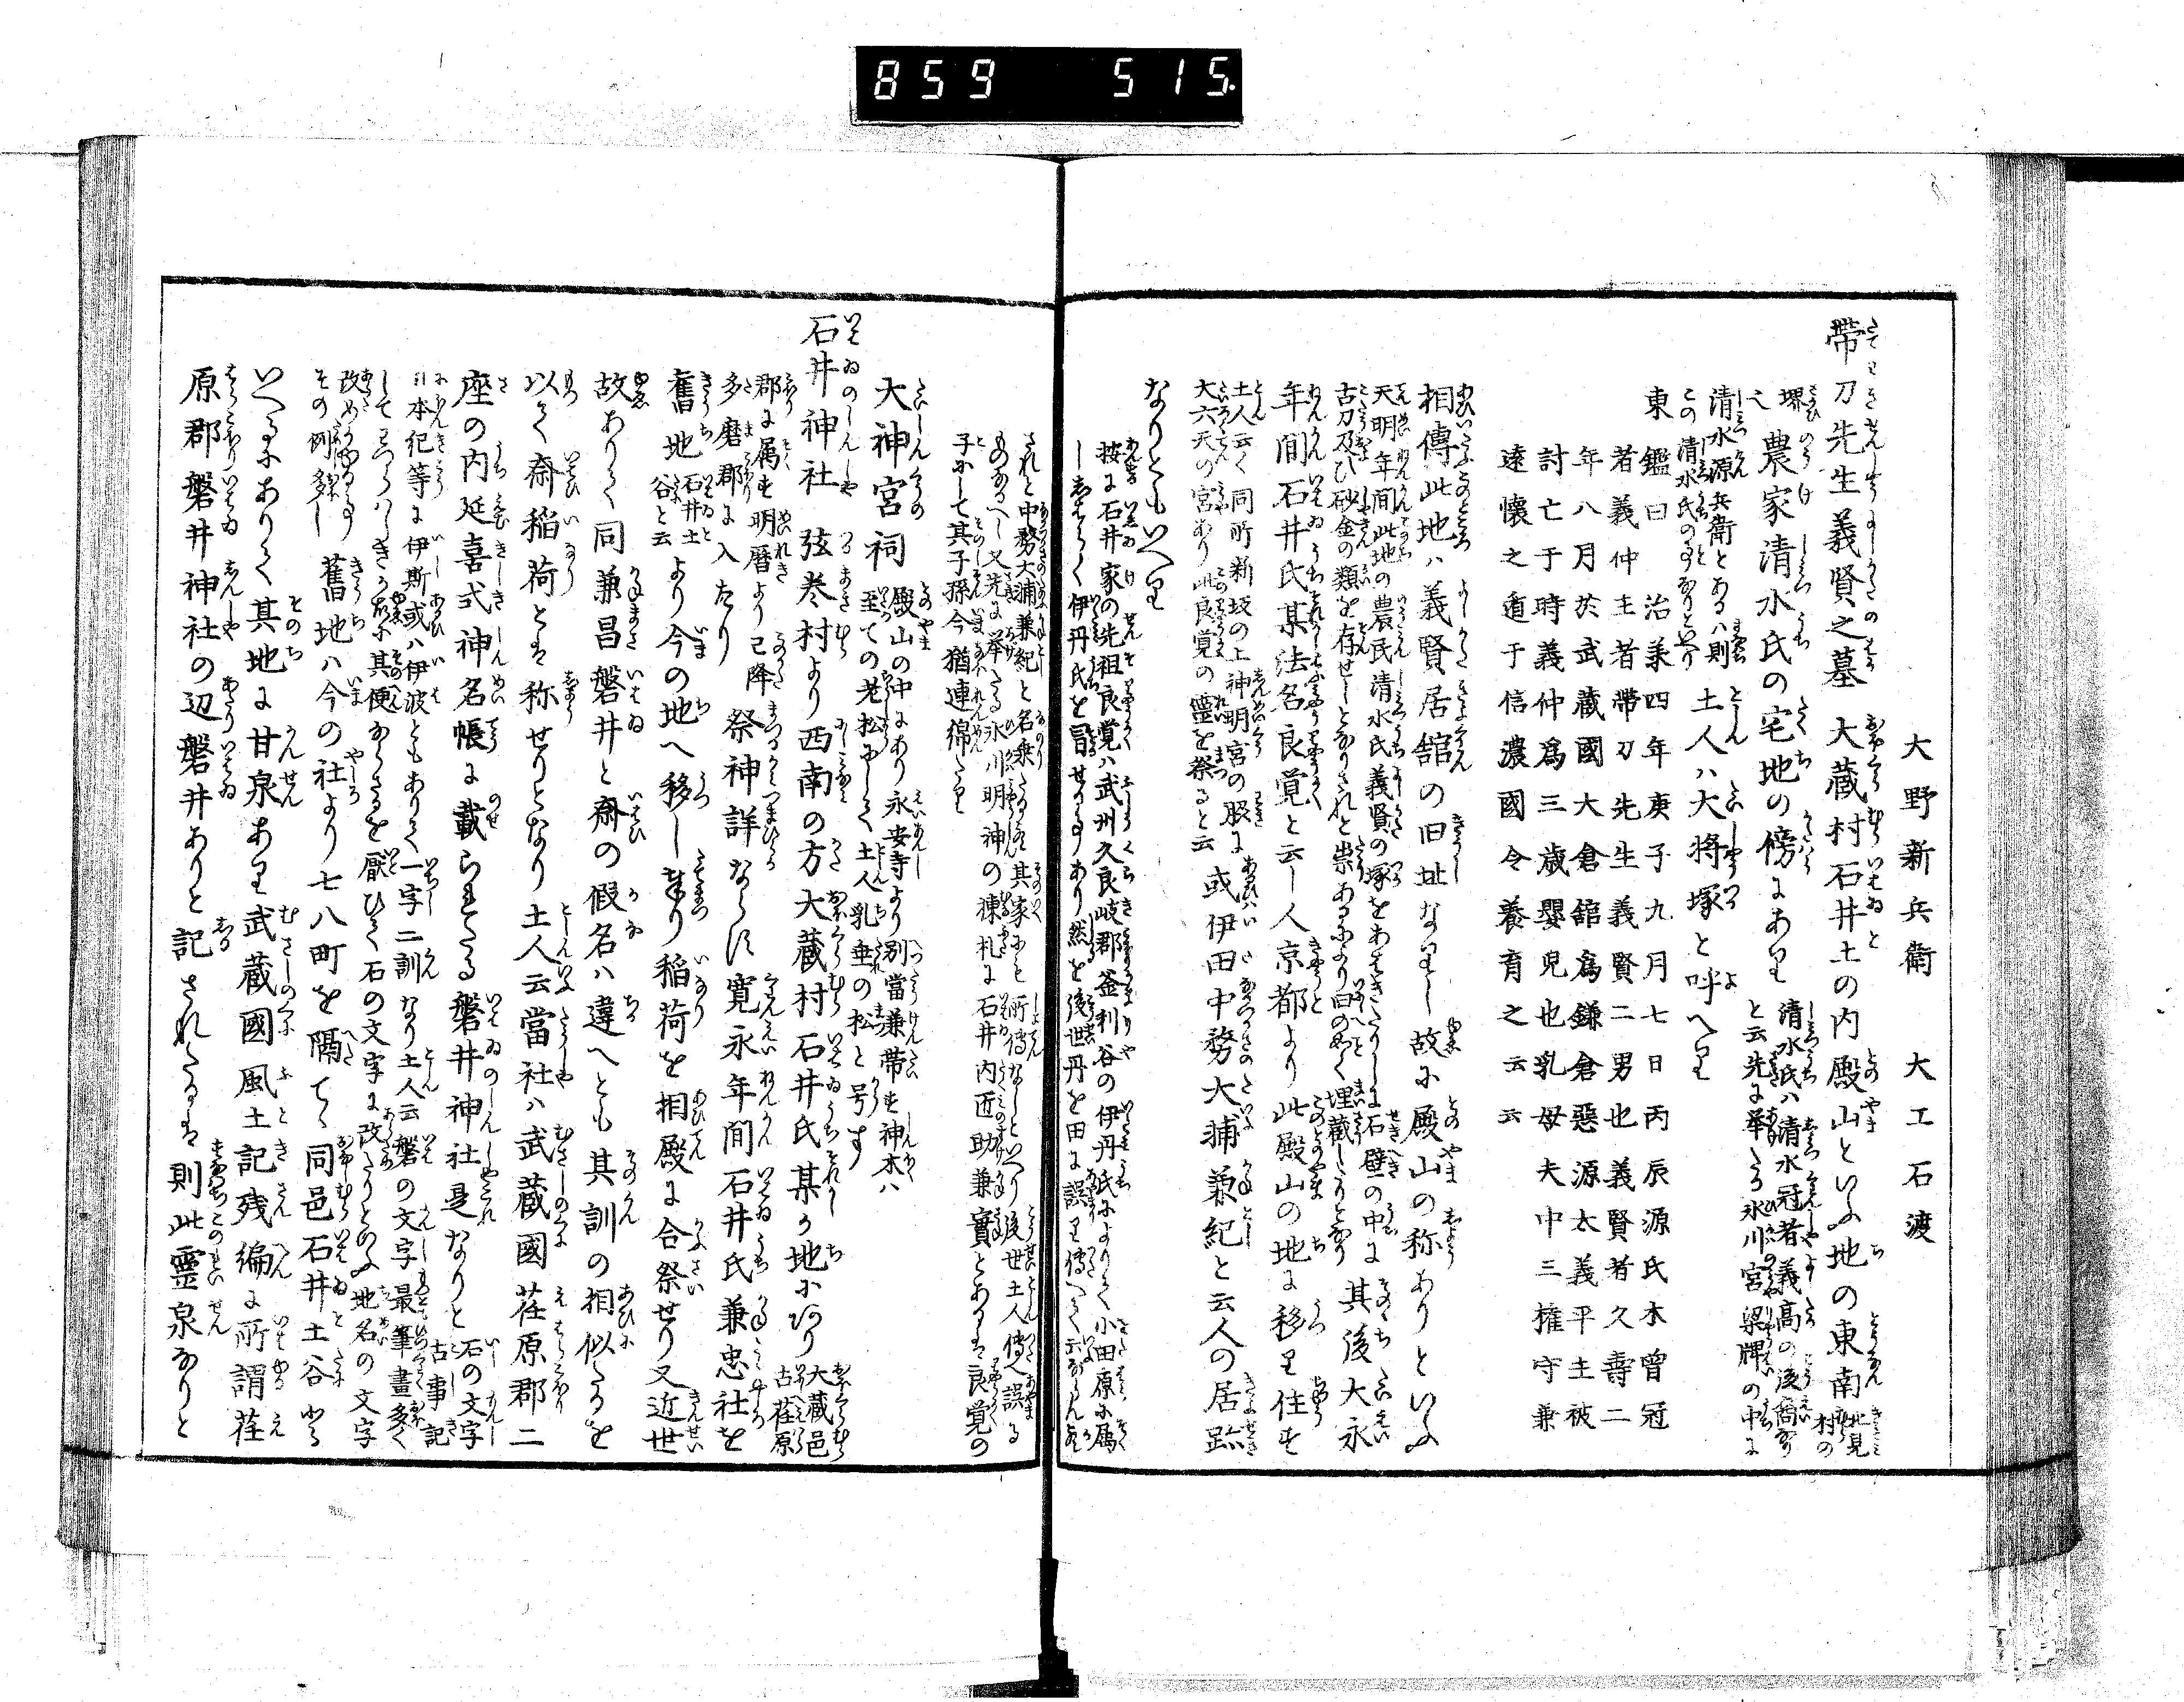 859 515.
大野新兵衛　大工石渡
帯刀先生義賢之墓　大蔵村石井土の内殿山といふ地の東南
北見村の
堺
農家清水氏の宅地の傍にあり
清水氏ハ清水冠者義高の後裔なり
と云先に挙る氷川宮梁牌の中に
清水源兵衛とあるハ則
この清水氏の事なりといへり
土人ハ大将塚と呼へり
東鑑曰　治承四年庚子九月七日丙辰源氏木曽冠
者義仲主者帯刀先生義賢二男也義賢者久壽二
年八月於武蔵國大倉舘為鎌倉惡源太義平主被
討亡于時義仲為三歳嬰児也乳母夫中三権守兼
遠懐之遁于信濃國令養育之云云
相傳此地ハ義賢居舘の旧址なりし故に殿山の称ありといふ
天明年間此地の農民清水氏義賢の塚をあはきたりしに石壁の中に
古刀及ひ砂金の類を存せしとなりされと崇あるにより旧のめく埋蔵したりとなり
其後大永
年間石井氏某法名良覚と云し人京都より此殿山の地に移り住す
土人云く同所新坂の上神明宮の股に
大六天の宮あり此良覚の霊を祭ると云
或伊田中務大輔兼紀と云人の居跡
なりともいへり
按に石井家の先祖良覚ハ武州久良岐郡釜利谷の伊丹氏によりて小田原に属
しはらく伊丹氏を冒せる事あり然を後世丹を田に誤り傳へて云ならん
されと中務大輔兼紀と名乗たるは其家にも所傳なしといへり後世土人傳へ誤る
ものなるへし又先に挙たる氷川明神の棟札に石井内匠助兼實とあるは良覚の
子にして其子孫今猶連綿たり
大神宮祠　殿山の中にあり永安寺より別當兼帯す神木ハ
至ての老松にして土人乳垂の松と号す
石井神社　弦巻村より西南の方大蔵村石井氏某か地にあり
大蔵邑
古荏原
郡に属す明暦より已降
多磨郡に入たり
祭神詳ならす寛永年間石井氏兼忠社を
舊地
石井土
谷と云
より今の地へ移し奉り稲荷を相殿に合祭せり又近世
故ありて同兼昌磐井と齋の假名ハ違へとも其訓の相似たるを
以て齋稲荷とは称せりとなり土人云當社ハ武蔵國荏原郡二
座の内延喜式神名帳に載られたる磐井神社是なりと
石の文字
古事記
日本紀等に伊斯或ハ伊波ともありて一字二訓なり土人云磐の文字最筆畫多く
してわつらハしきか故に其便ならさるを厭ひて石の文字に改たりとあふ地名の文字
改めかゆる事
その例多し
舊地ハ今の社より七八町を隔て同邑石井土谷と
いへるにありて其地に甘泉あり武蔵國風土記残編に所謂荏
原郡磐井神社の辺磐井ありと記されたるは則此霊泉なりと